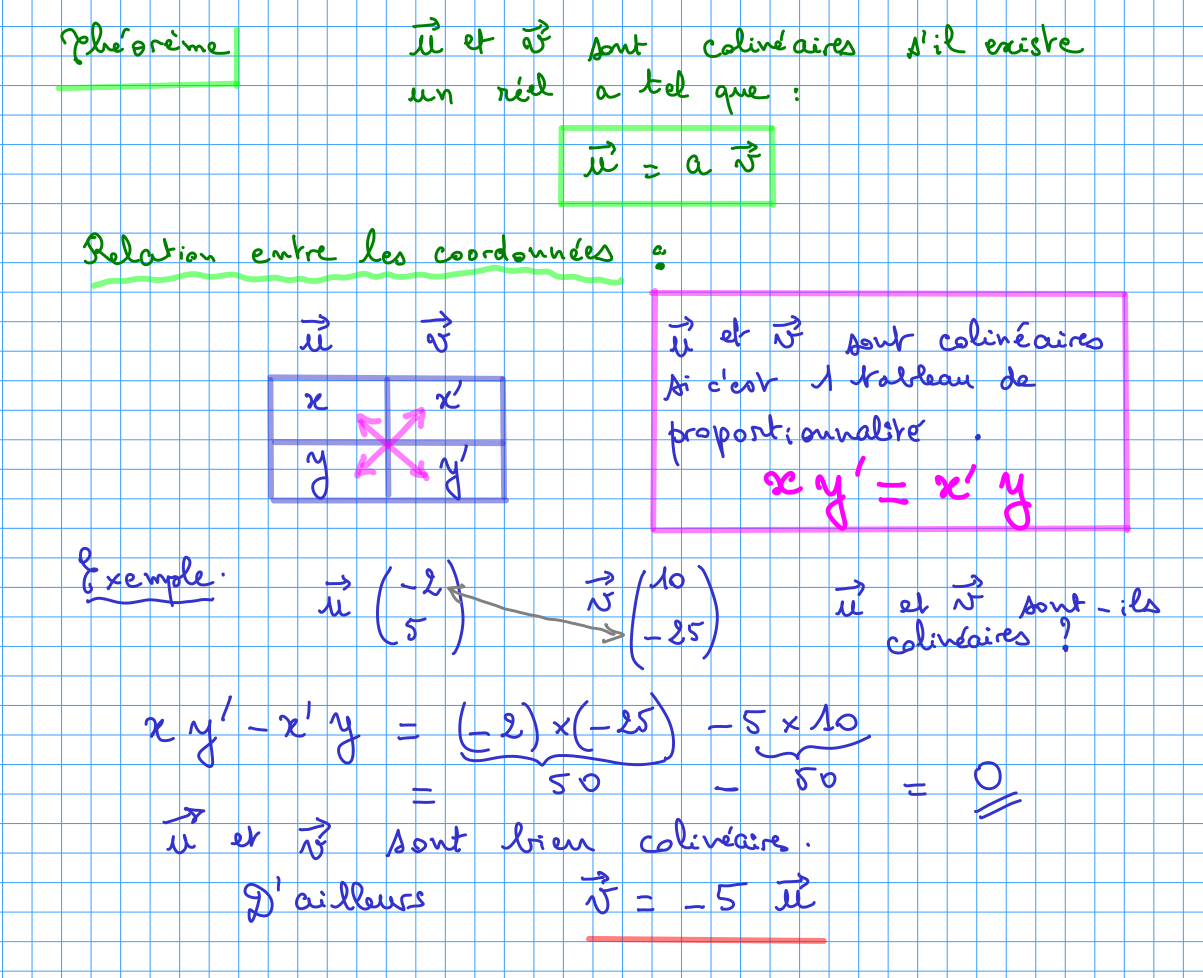 Théorème
u⃗ et v⃗ sont colinéaires s'il existe
un réel a tel que :
u⃗ = a v⃗
Relation entre les coordonnées :
u⃗ v⃗
x x'
y y'
u⃗ et v⃗ sont colinéaires
si c'est 1 tableau de
proportionnalité .
x y' = x' y
Exemple.
u⃗ (-2 5) v⃗ (10 -25) u⃗ et v⃗ sont-ils
colinéaires ?
x y' - x' y = (-2) × (-25) - 5 × 10
= 50 - 50 = 0
u⃗ et v⃗ sont bien colinéaires.
D'ailleurs v⃗ = -5 u⃗